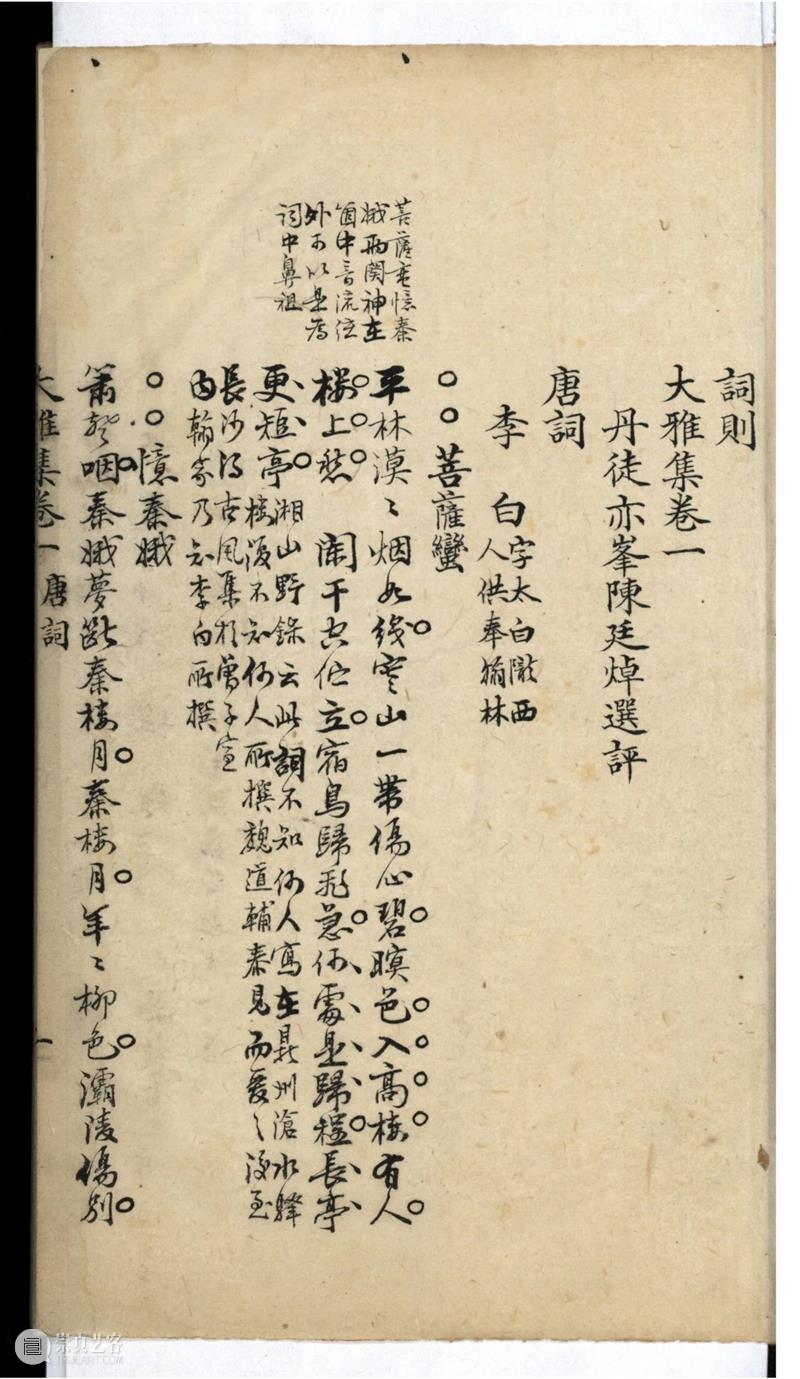 詞則
大雅集卷一
丹徒亦峯陳廷焯選評
唐詞
李白字太白隴西
人供奉翰林
菩薩蠻
平林漠〻烟如线寒山一帶傷心碧暝色入高楼有人
楼上愁　闌干空伫立宿鳥歸飛急何處是歸程長亭
更短亭湘山野錄云此詞不知何人寫在鼎州滄水驛
楼後不知何人所撰魏道輔泰見而愛〻後至
長沙得古風集於曾子宣
内翰家乃知李白所撰
菩薩蛮憶秦
娥兩闋神在
箇中音流弦
外可以是為
词中鼻祖
憶秦娥
簫聲咽秦娥夢斷秦楼月秦楼月年〻柳色灞陵傷别
大雅集卷一 唐詞 一
崇真艺客
TRUEART.COM